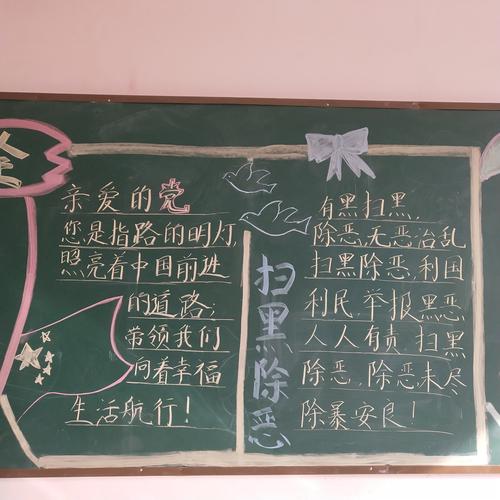 亲爱的党
您是指路的明灯,
照亮着中国前进
的道路;
带领我们
向着幸福
生活航行!
扫黑除恶
有黑扫黑,
除恶,无恶治乱
扫黑除恶,利国
利民,举报黑恶
人人有责,扫黑
除恶,除恶未尽
除暴安良!